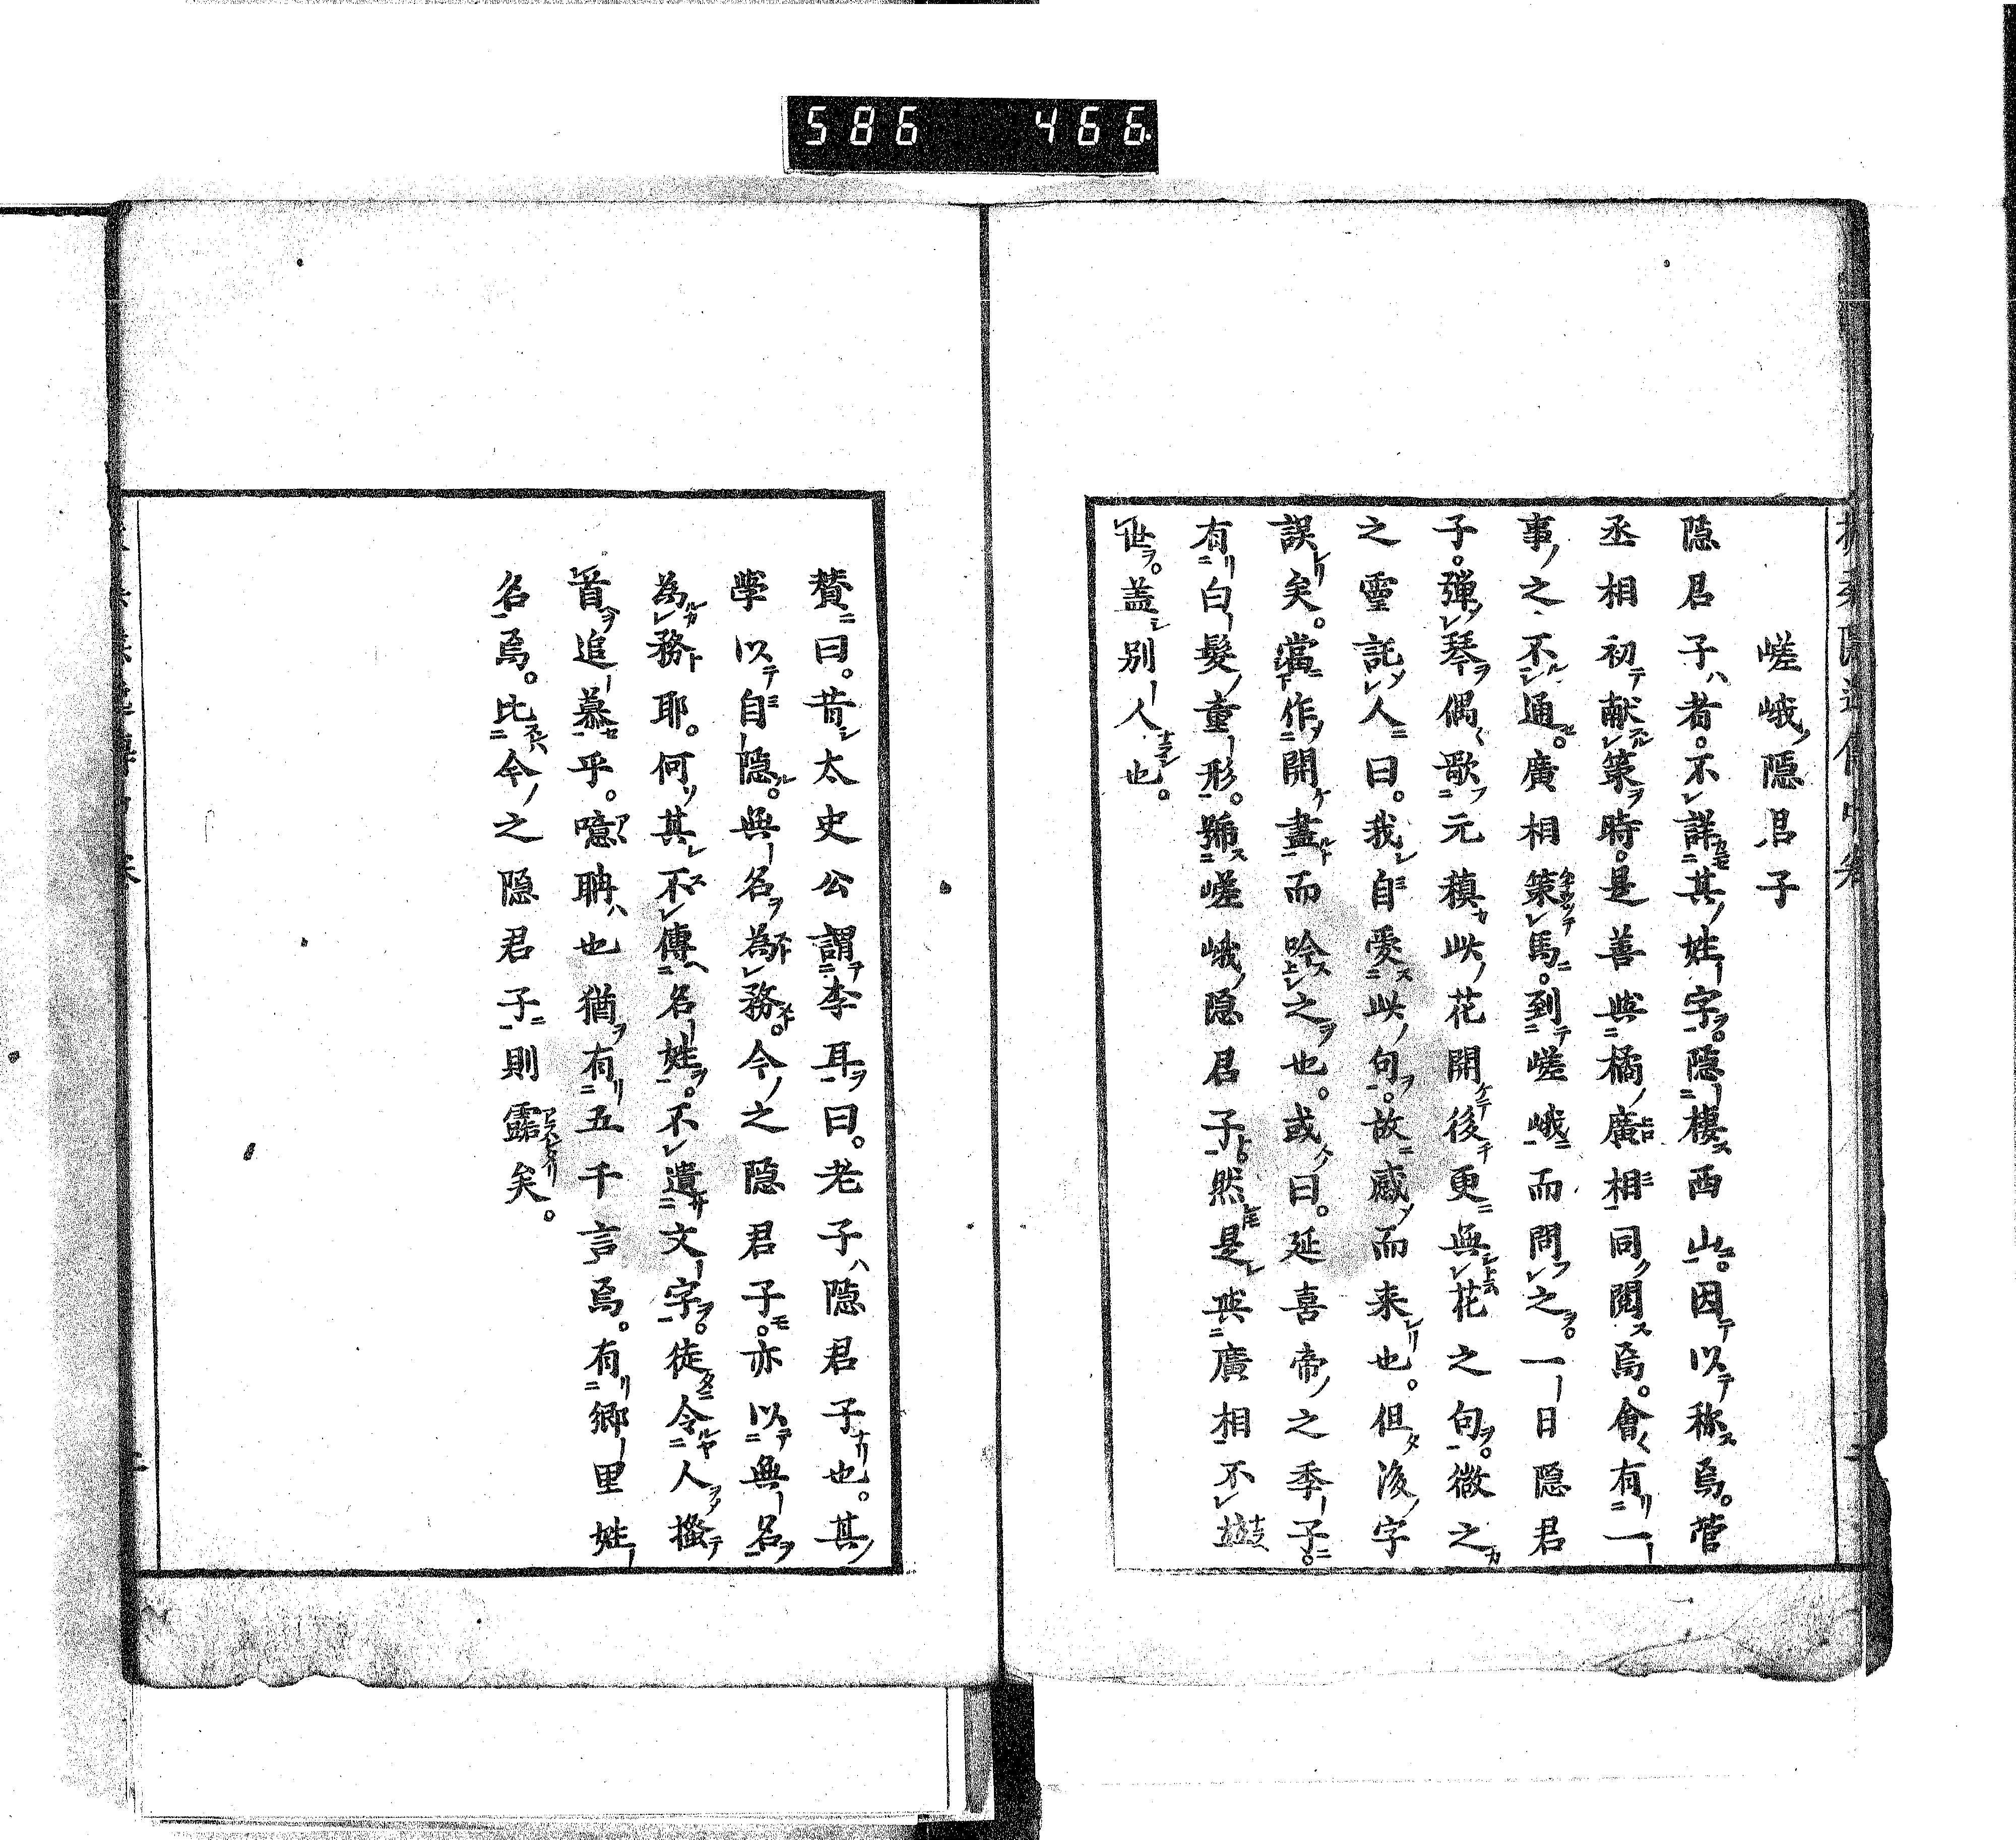 586 466
嵯峨隠君子
隠君子者。不詳其姓字。隠棲西山。因以称焉。菅
丞相初献策時。是善與橘廣相同閲焉。會有一
事之不通。廣相策馬。到嵯峨而問之。一日隠君
子。彈琴偶歌元稹此花開後更無花之句。微之
之霊託人曰。我自愛此句。故感而来也。但後字
誤矣。當作開盡而吟之也。或曰。延喜帝之季子。
有白髮童形。號嵯峨隠君子然是與廣相不並
世。盖別人也。
賛曰。昔太史公謂李耳曰。老子隠君子也。其
學以自隠。無名為務。今之隠君子。亦以無名
為務耶。何其不傳名姓。不遺文字。徒令人搔
首追慕乎。噫聃也猶有五千言焉。有郷里姓
名焉。比今之隠君子則露矣。